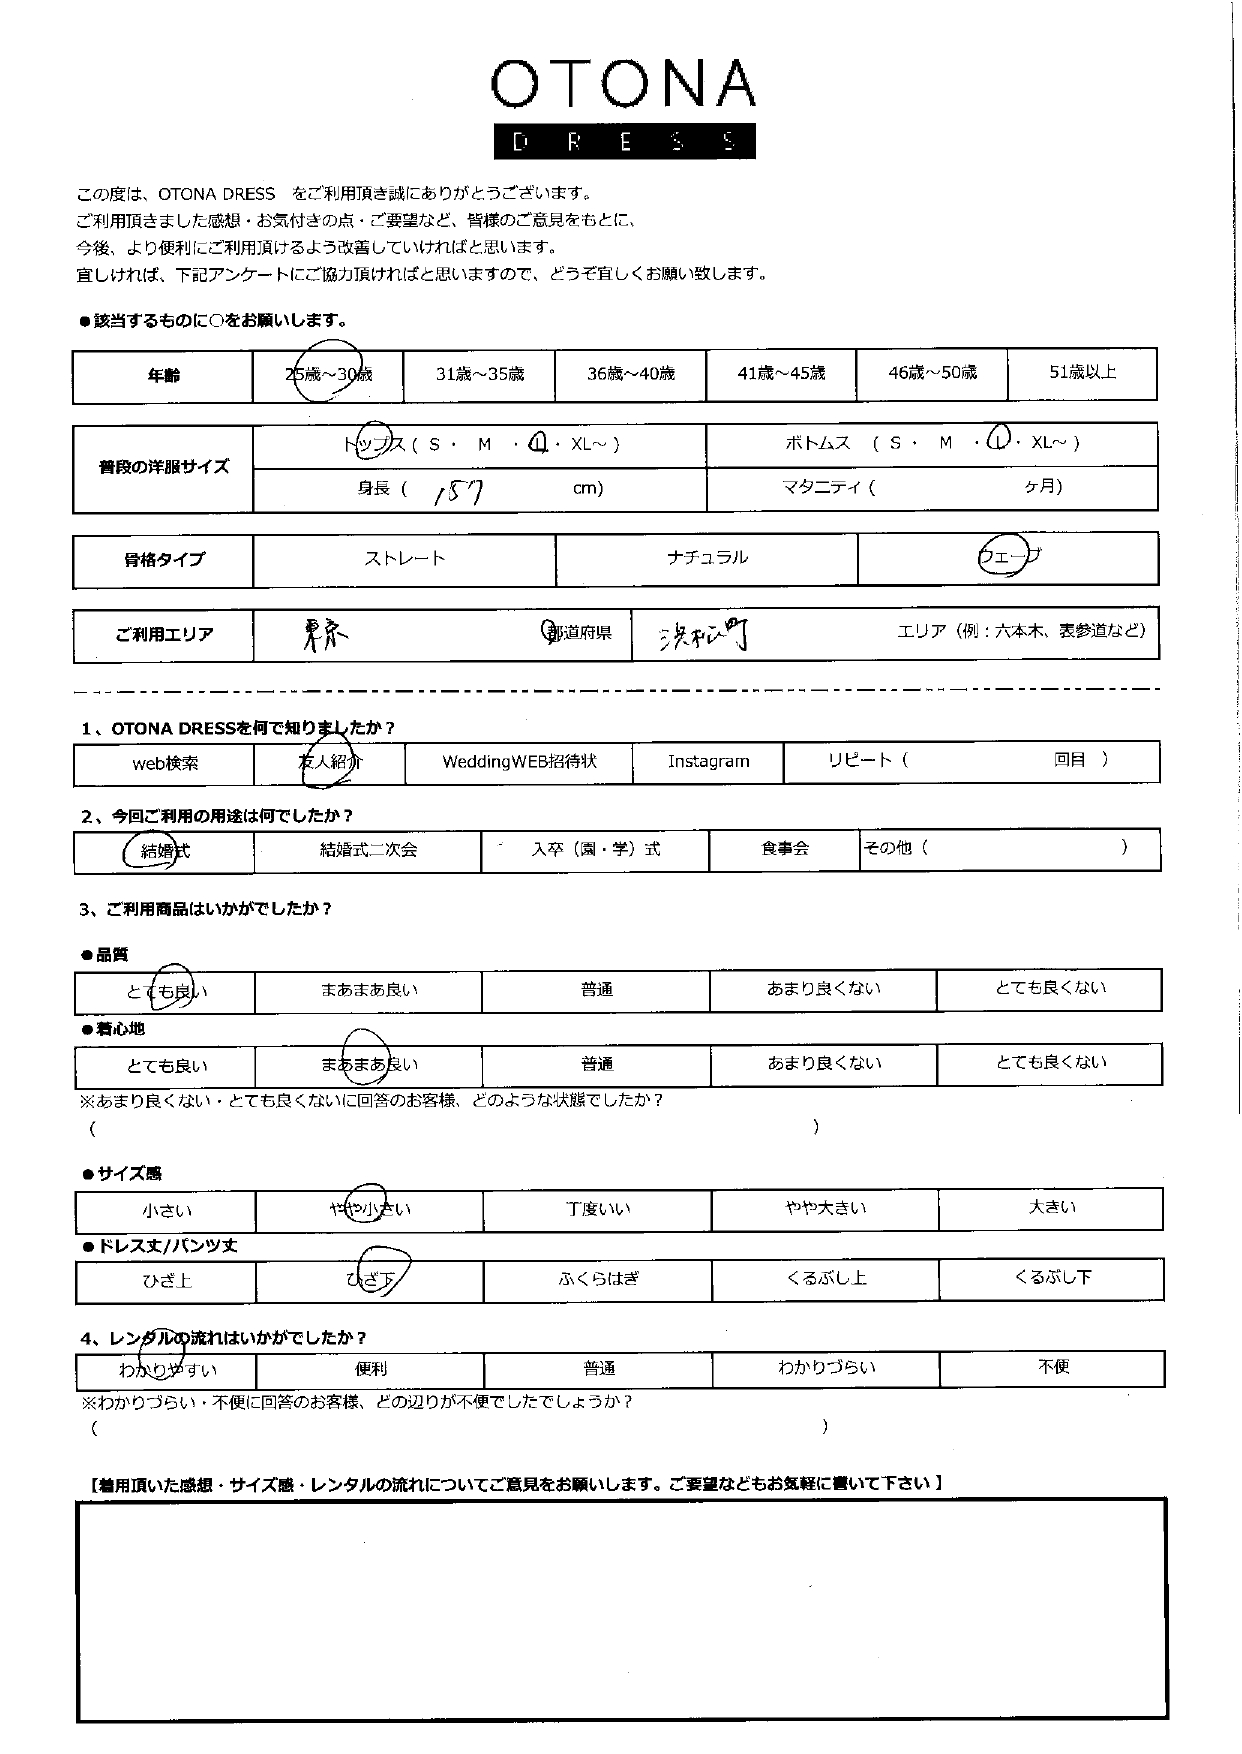 OTONA
DRESS
この度は、OTONA DRESS をご利用頂き誠にありがとうございます。
ご利用頂きました感想・お気付きの点・ご要望など、皆様のご意見をもとに、
今後、より便利にご利用頂けるよう改善していければと思います。
宜しければ、下記アンケートにご協力頂ければと思いますので、どうぞ宜しくお願い致します。
●該当するものに○をお願いします。
年齢 25歳～30歳 31歳～35歳 36歳～40歳 41歳～45歳 46歳～50歳 51歳以上
普段の洋服サイズ トップス ( S ・ M ・ L ・ XL～ ) ボトムス ( S ・ M ・ L ・ XL～ )
身長 ( 157 cm) マタニティ ( ヶ月)
骨格タイプ ストレート ナチュラル ウェーブ
ご利用エリア 東京 都道府県 浜松町 エリア（例：六本木、表参道など）
1、OTONA DRESSを何で知りましたか？
web検索 友人紹介 WeddingWEB招待状 Instagram リピート ( 回目 )
2、今回ご利用の用途は何でしたか？
結婚式 結婚式二次会 入卒（園・学）式 食事会 その他 ( )
3、ご利用商品はいかがでしたか？
●品質
とても良い まあまあ良い 普通 あまり良くない とても良くない
●着心地
とても良い まあまあ良い 普通 あまり良くない とても良くない
※あまり良くない・とても良くないに回答のお客様、どのような状態でしたか？
( )
●サイズ感
小さい やや小さい 丁度いい やや大きい 大きい
●ドレス丈/パンツ丈
ひざ上 ひざ下 ふくらはぎ くるぶし上 くるぶし下
4、レンタルの流れはいかがでしたか？
わかりやすい 便利 普通 わかりづらい 不便
※わかりづらい・不便に回答のお客様、どの辺りが不便でしたでしょうか？
( )
【着用頂いた感想・サイズ感・レンタルの流れについてご意見をお願いします。ご要望などもお気軽に書いて下さい 】